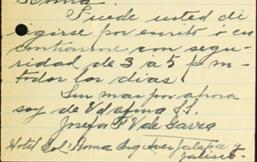 Roma.
Puede usted di
rigirse por escrito o en
contrarme con segu-
ridad de 3 a 5 p m
todos los dias.
Sin mas por ahora
soy de Ud afma S.S.
Josefa F V de Garza
Hotel Col. Roma Esq Ave Jalapa y
Jalisco.